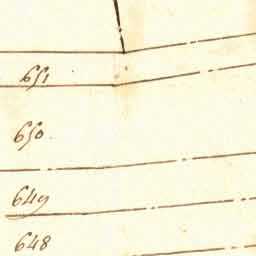 651
650
649
648